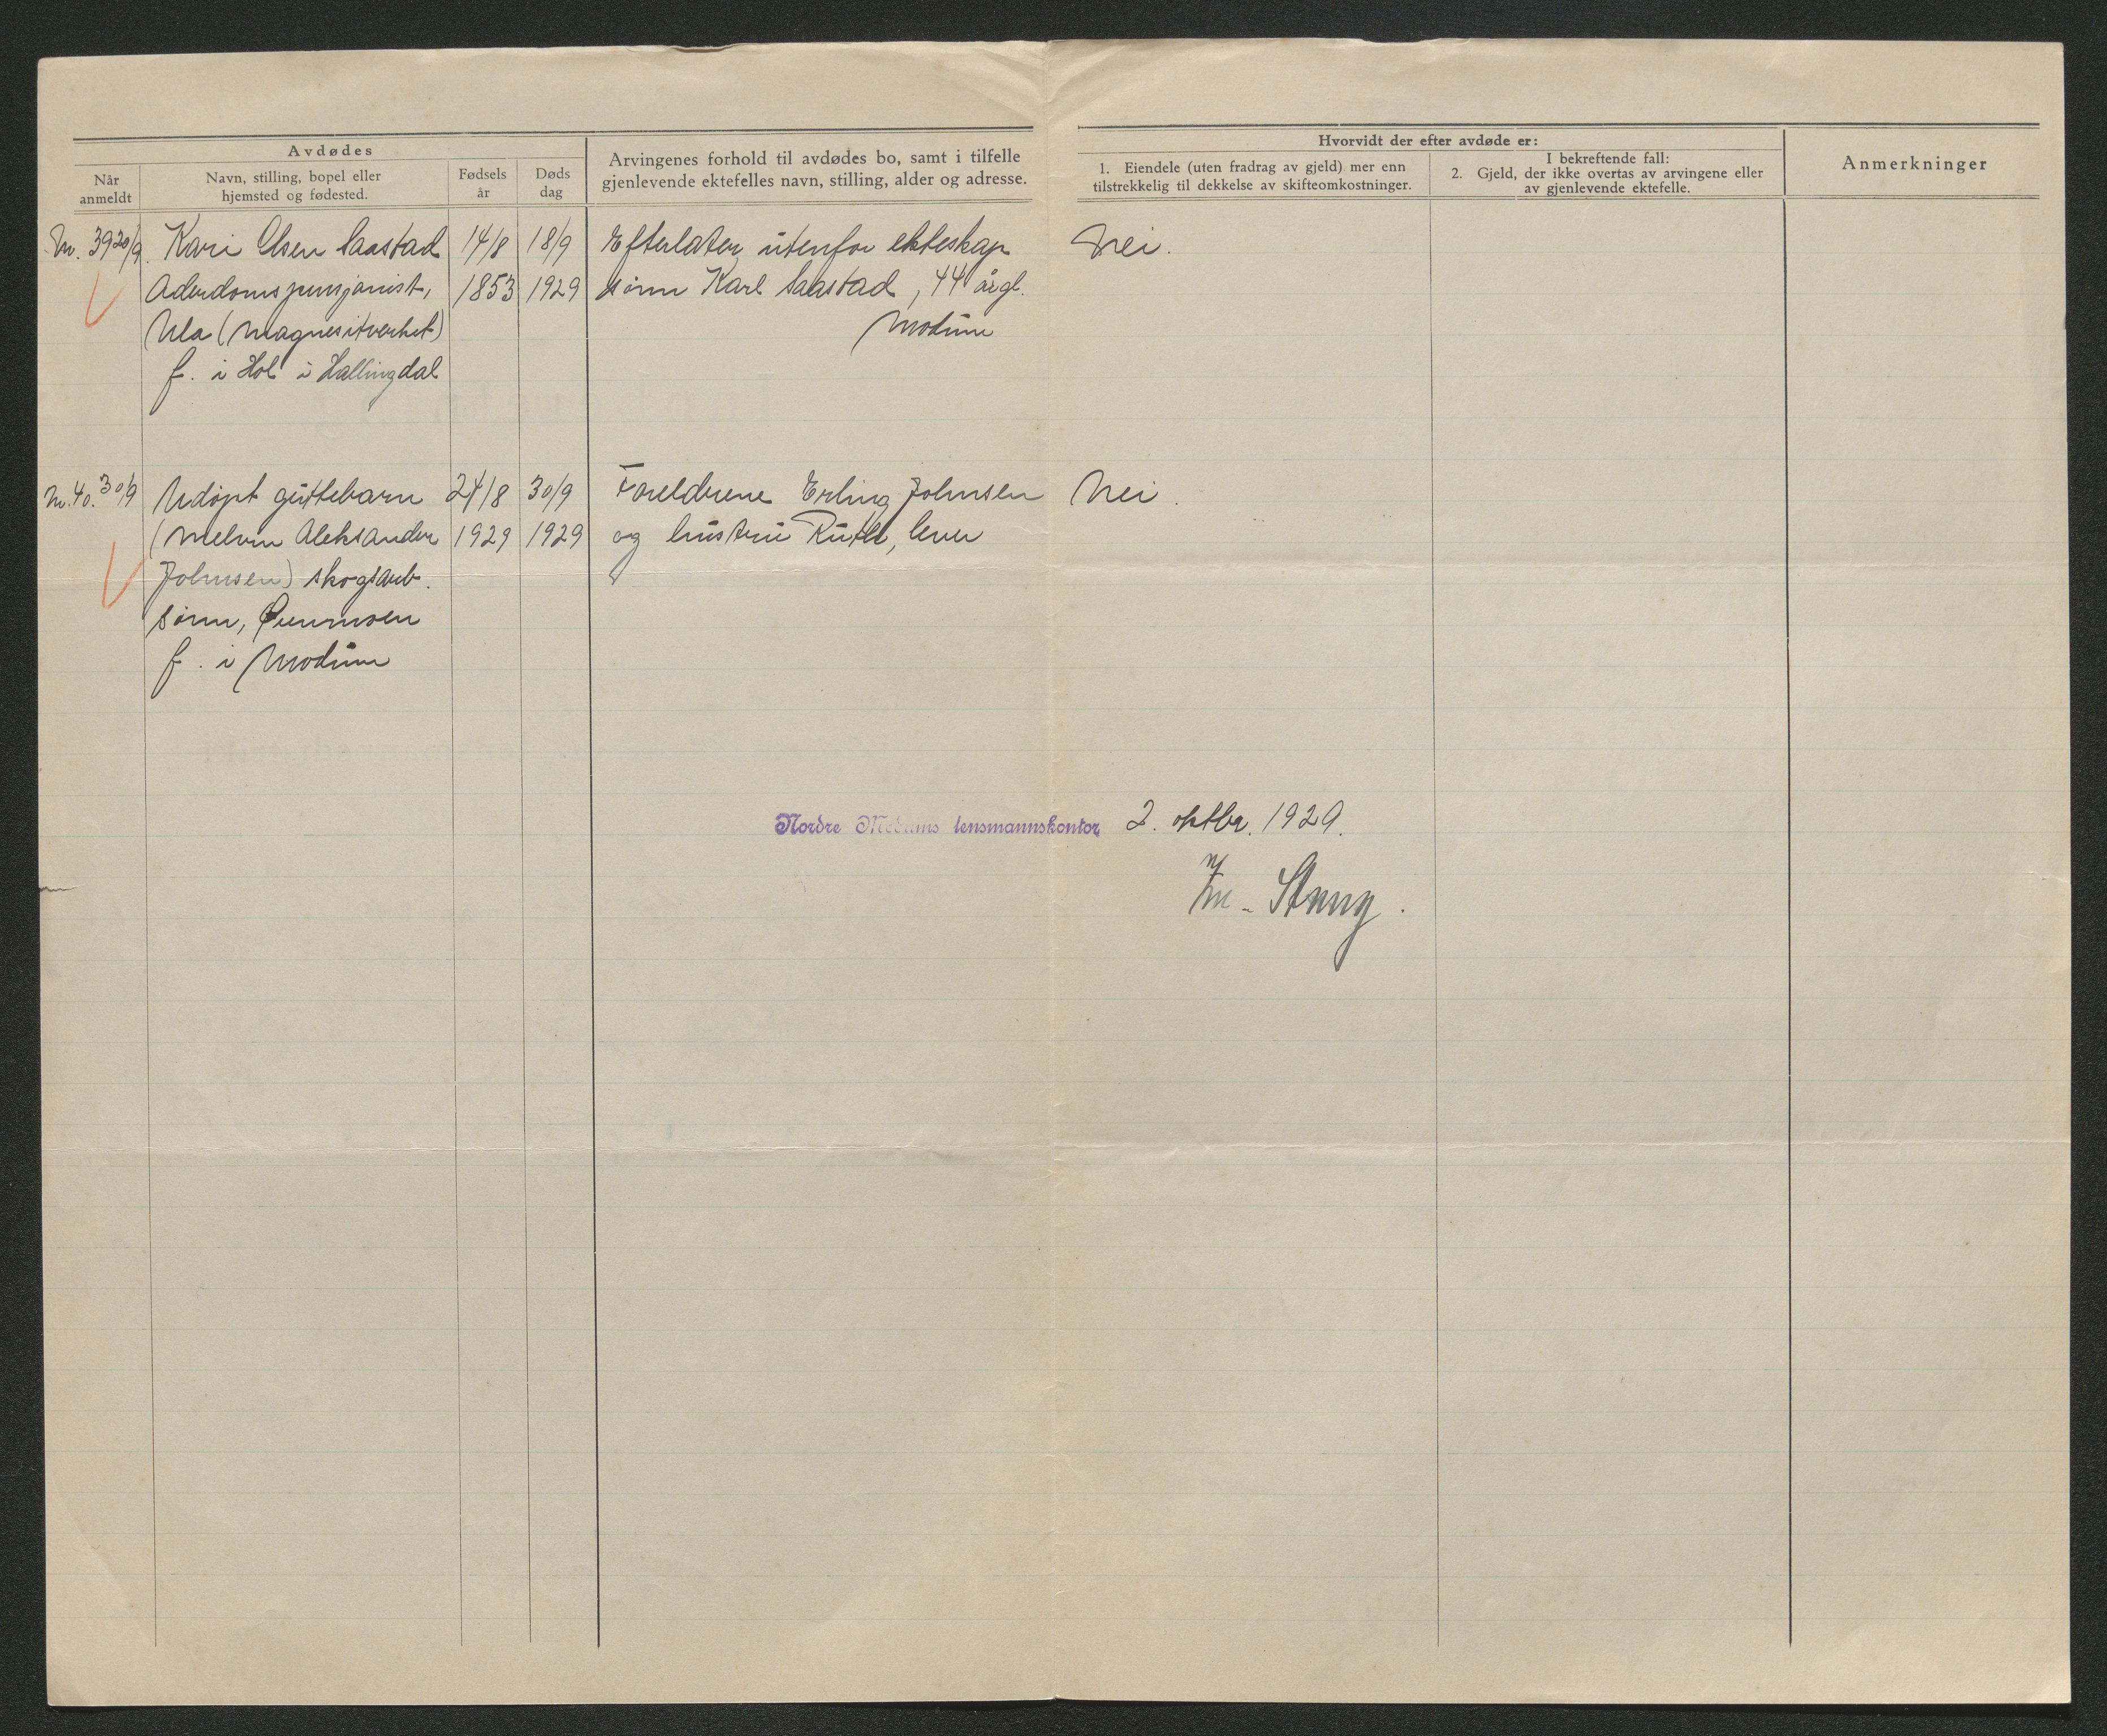 Avdødes
Når anmeldt
Navn, stilling, bopel eller hjemsted og fødested.
Fødsels år
Døds dag
Arvingenes forhold til avdødes bo, samt i tilfelle gjenlevende ektefelles navn, stilling, alder og adresse.
Hvorvidt der efter avdøde er:
1. Eiendele (uten fradrag av gjeld) mer enn tilstrekkelig til dekkelse av skifteomkostninger.
I bekreftende fall:
2. Gjeld, der ikke overtas av arvingene eller av gjenlevende ektefelle.
Anmerkninger
Nr. 39 20/9. Kari Olsen Saastad 14/8 18/9 Efterlater utenfor ekteskap Nei.
Alderdomspensjonist, 1853 1929 sønn Karl Saastad, 44 årgl.
Ula (Magnesitverket) Modum
f. i Hol i Hallingdal
Nr. 40. 30/9 Udøpt guttebarn 24/8 30/9 Foreldrene Erling Johnsen Nei.
(Melvin Aleksander 1929 1929 og hustru Ruth, lever
Johnsen) skogsarb.
sønn,
f. i Modum
Nordre Modums lensmannskontor, 2. oktbr. 1929.